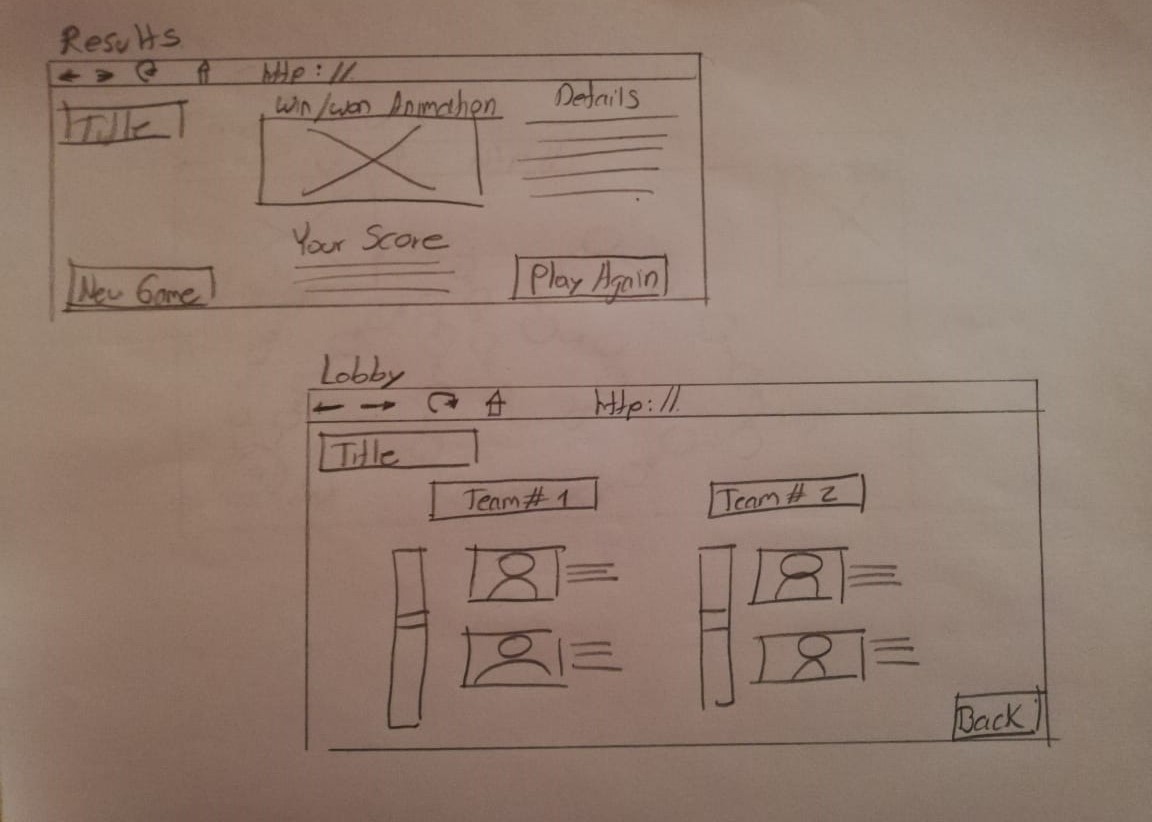 Results
http://
Title
Win/won Animation
Details
Your Score
New Game
Play Again
Lobby
http://
Title
Team# 1
Team# 2
Back